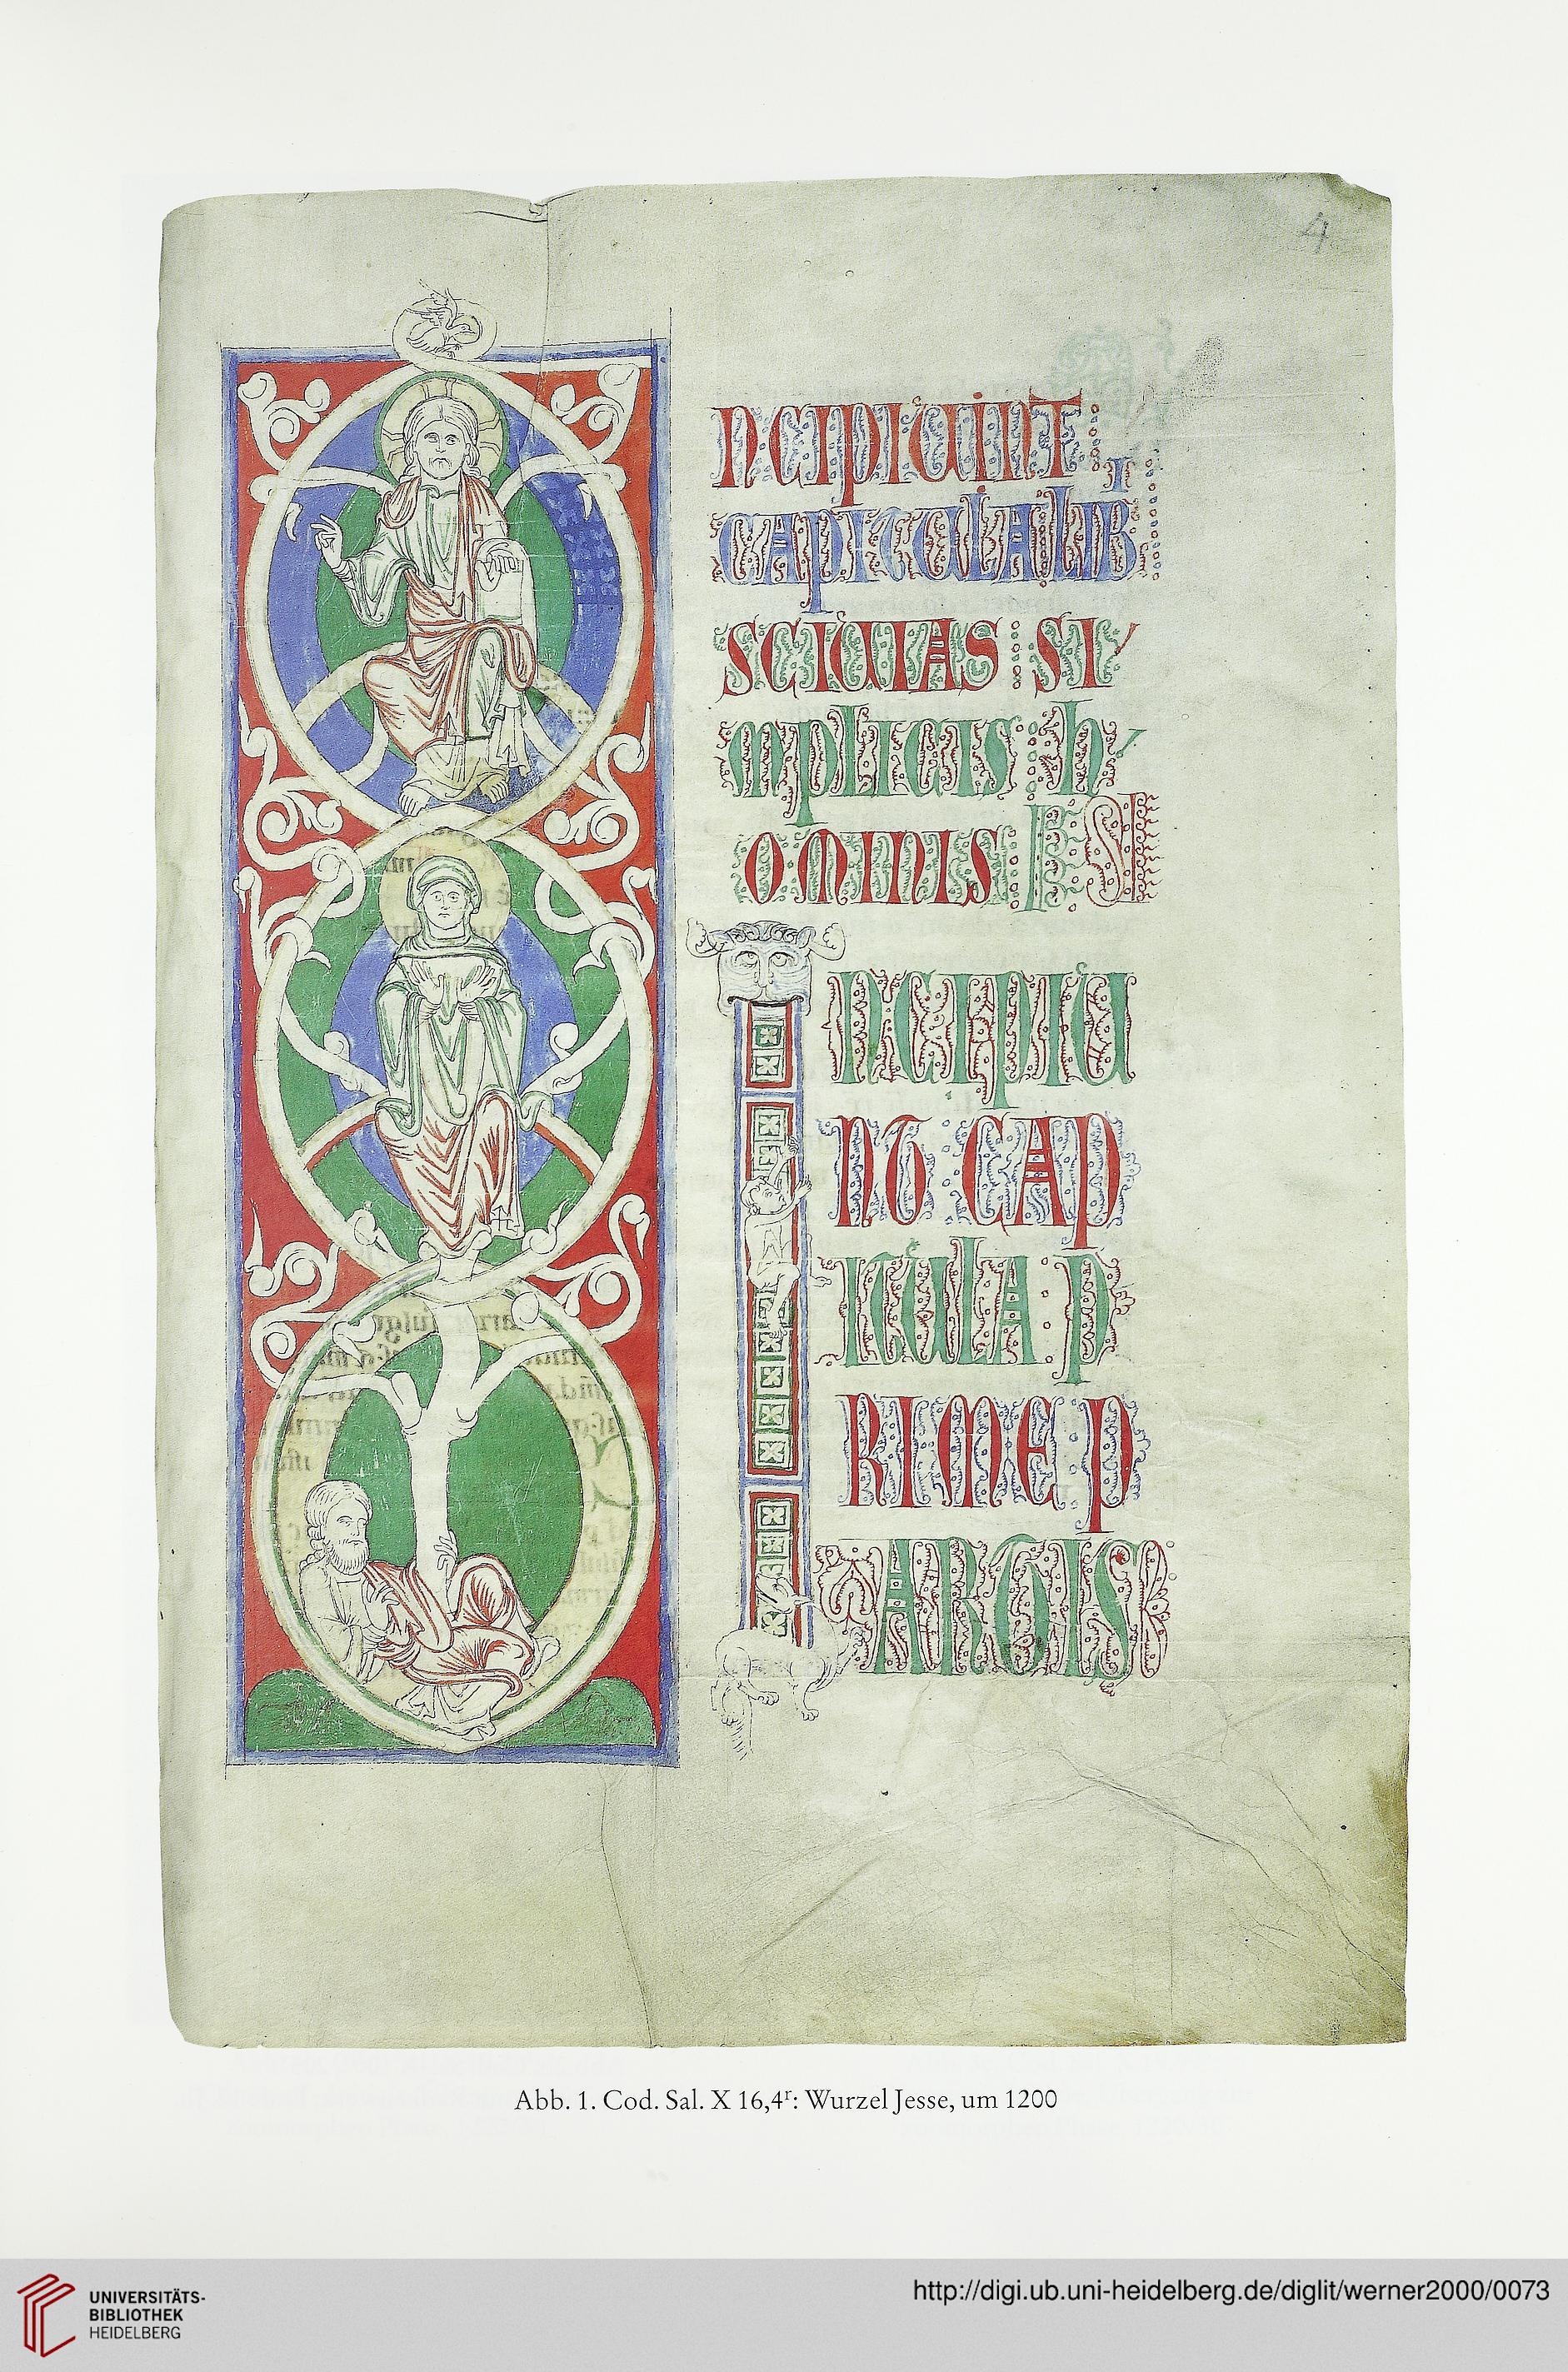 4
NCIPIUNT
CAPITULA LIB I
SCIVIAS SI
MPLICIS H
OMINIS
INCIPIU
NT CAP
ITULA P
RIME P
ARTIS
Abb. 1. Cod. Sal. X 16,4ʳ: Wurzel Jesse, um 1200
UNIVERSITÄTS-
BIBLIOTHEK
HEIDELBERG
http://digi.ub.uni-heidelberg.de/diglit/werner2000/0073